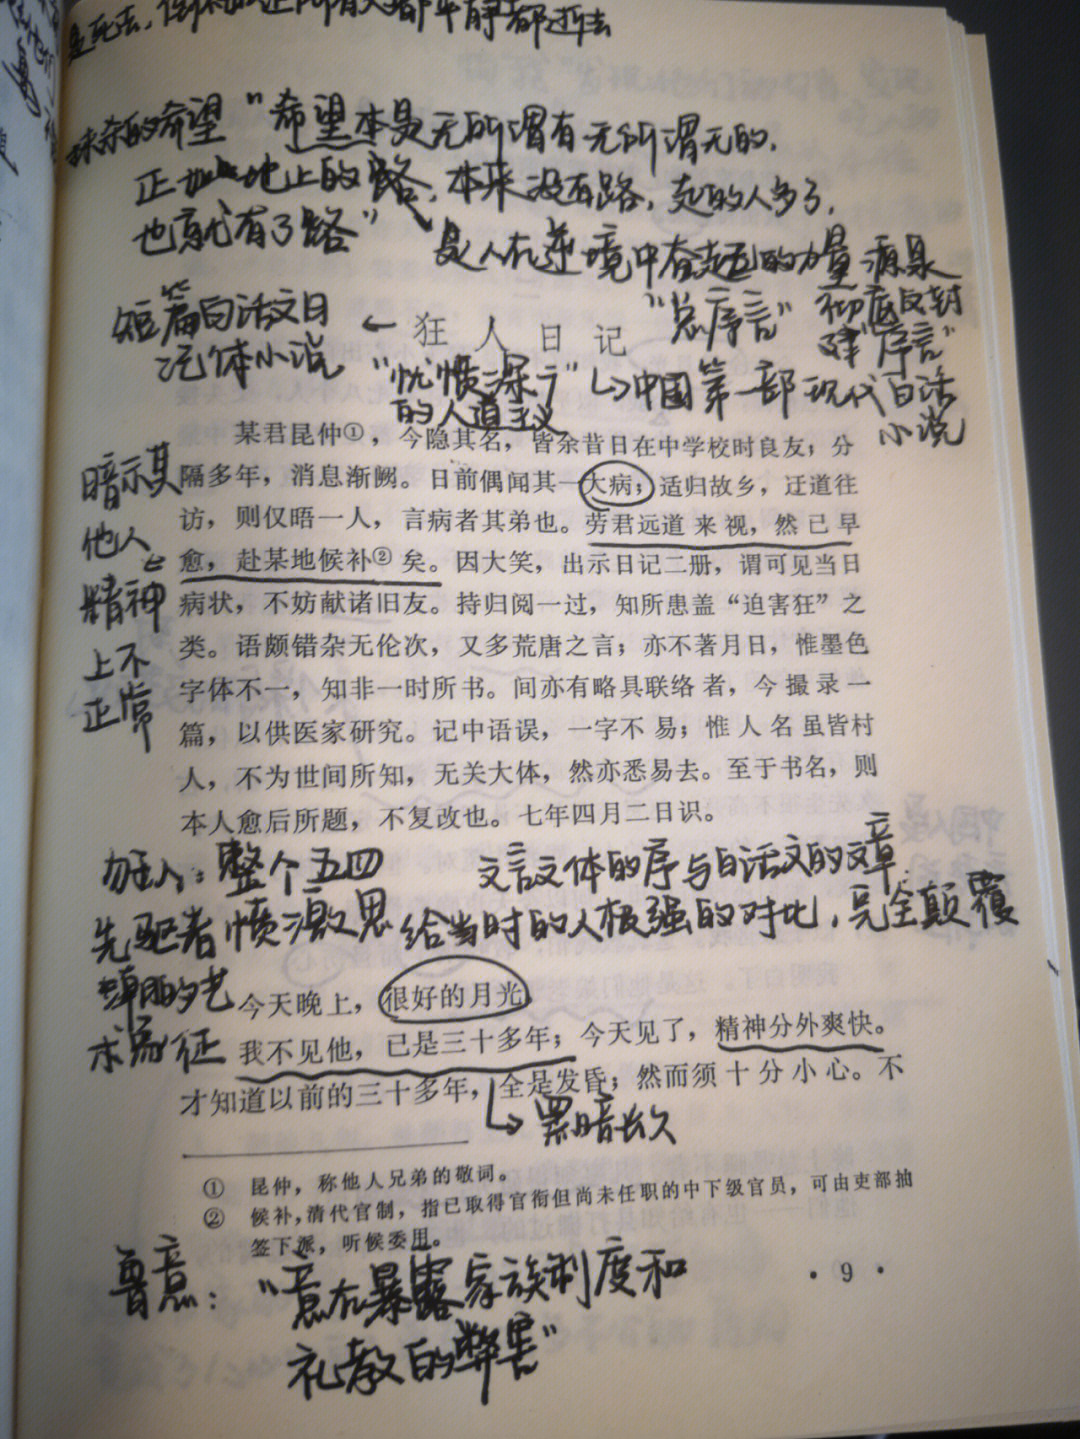 是死去,
都平静都逝去
抹杀的希望 “希望本是无所谓有无所谓无的,
正如地上的路,本来没有路,走的人多了,
也就有了路”
是人在逆境中奋起的力量源泉
短篇白话文日
记体小说
← 狂人日记
“总序言” 彻底反封
建“序言”
“忧愤深广”
的人道主义
↳中国第一部现代白话
小说
某君昆仲①,今隐其名,皆余昔日在中学校时良友;分
隔多年,消息渐阙。日前偶闻其一大病;适归故乡,迂道往
访,则仅晤一人,言病者其弟也。劳君远道来视,然已早
愈,赴某地候补②矣。因大笑,出示日记二册,谓可见当日
病状,不妨献诸旧友。持归阅一过,知所患盖“迫害狂”之
类。语颇错杂无伦次,又多荒唐之言;亦不著月日,惟墨色
字体不一,知非一时所书。间亦有略具联络者,今撮录一
篇,以供医家研究。记中语误,一字不易;惟人名虽皆村
人,不为世间所知,无关大体,然亦悉易去。至于书名,则
本人愈后所题,不复改也。七年四月二日识。
暗示其
他人
精神
上不
正常
狂人:整个五四
先驱者愤激思
的艺
术象征
文言文体的序与白话文的文章
给当时的人极强的对比,完全颠覆
今天晚上,很好的月光。
我不见他,已是三十多年;今天见了,精神分外爽快。
才知道以前的三十多年,全是发昏;然而须十分小心。不
↳黑暗长久
① 昆仲,称他人兄弟的敬词。
② 候补,清代官制,指已取得官衔但尚未任职的中下级官员,可由吏部抽
签下派,听候委用。
鲁意:“意在暴露家族制度和
礼教的弊害”
· 9 ·